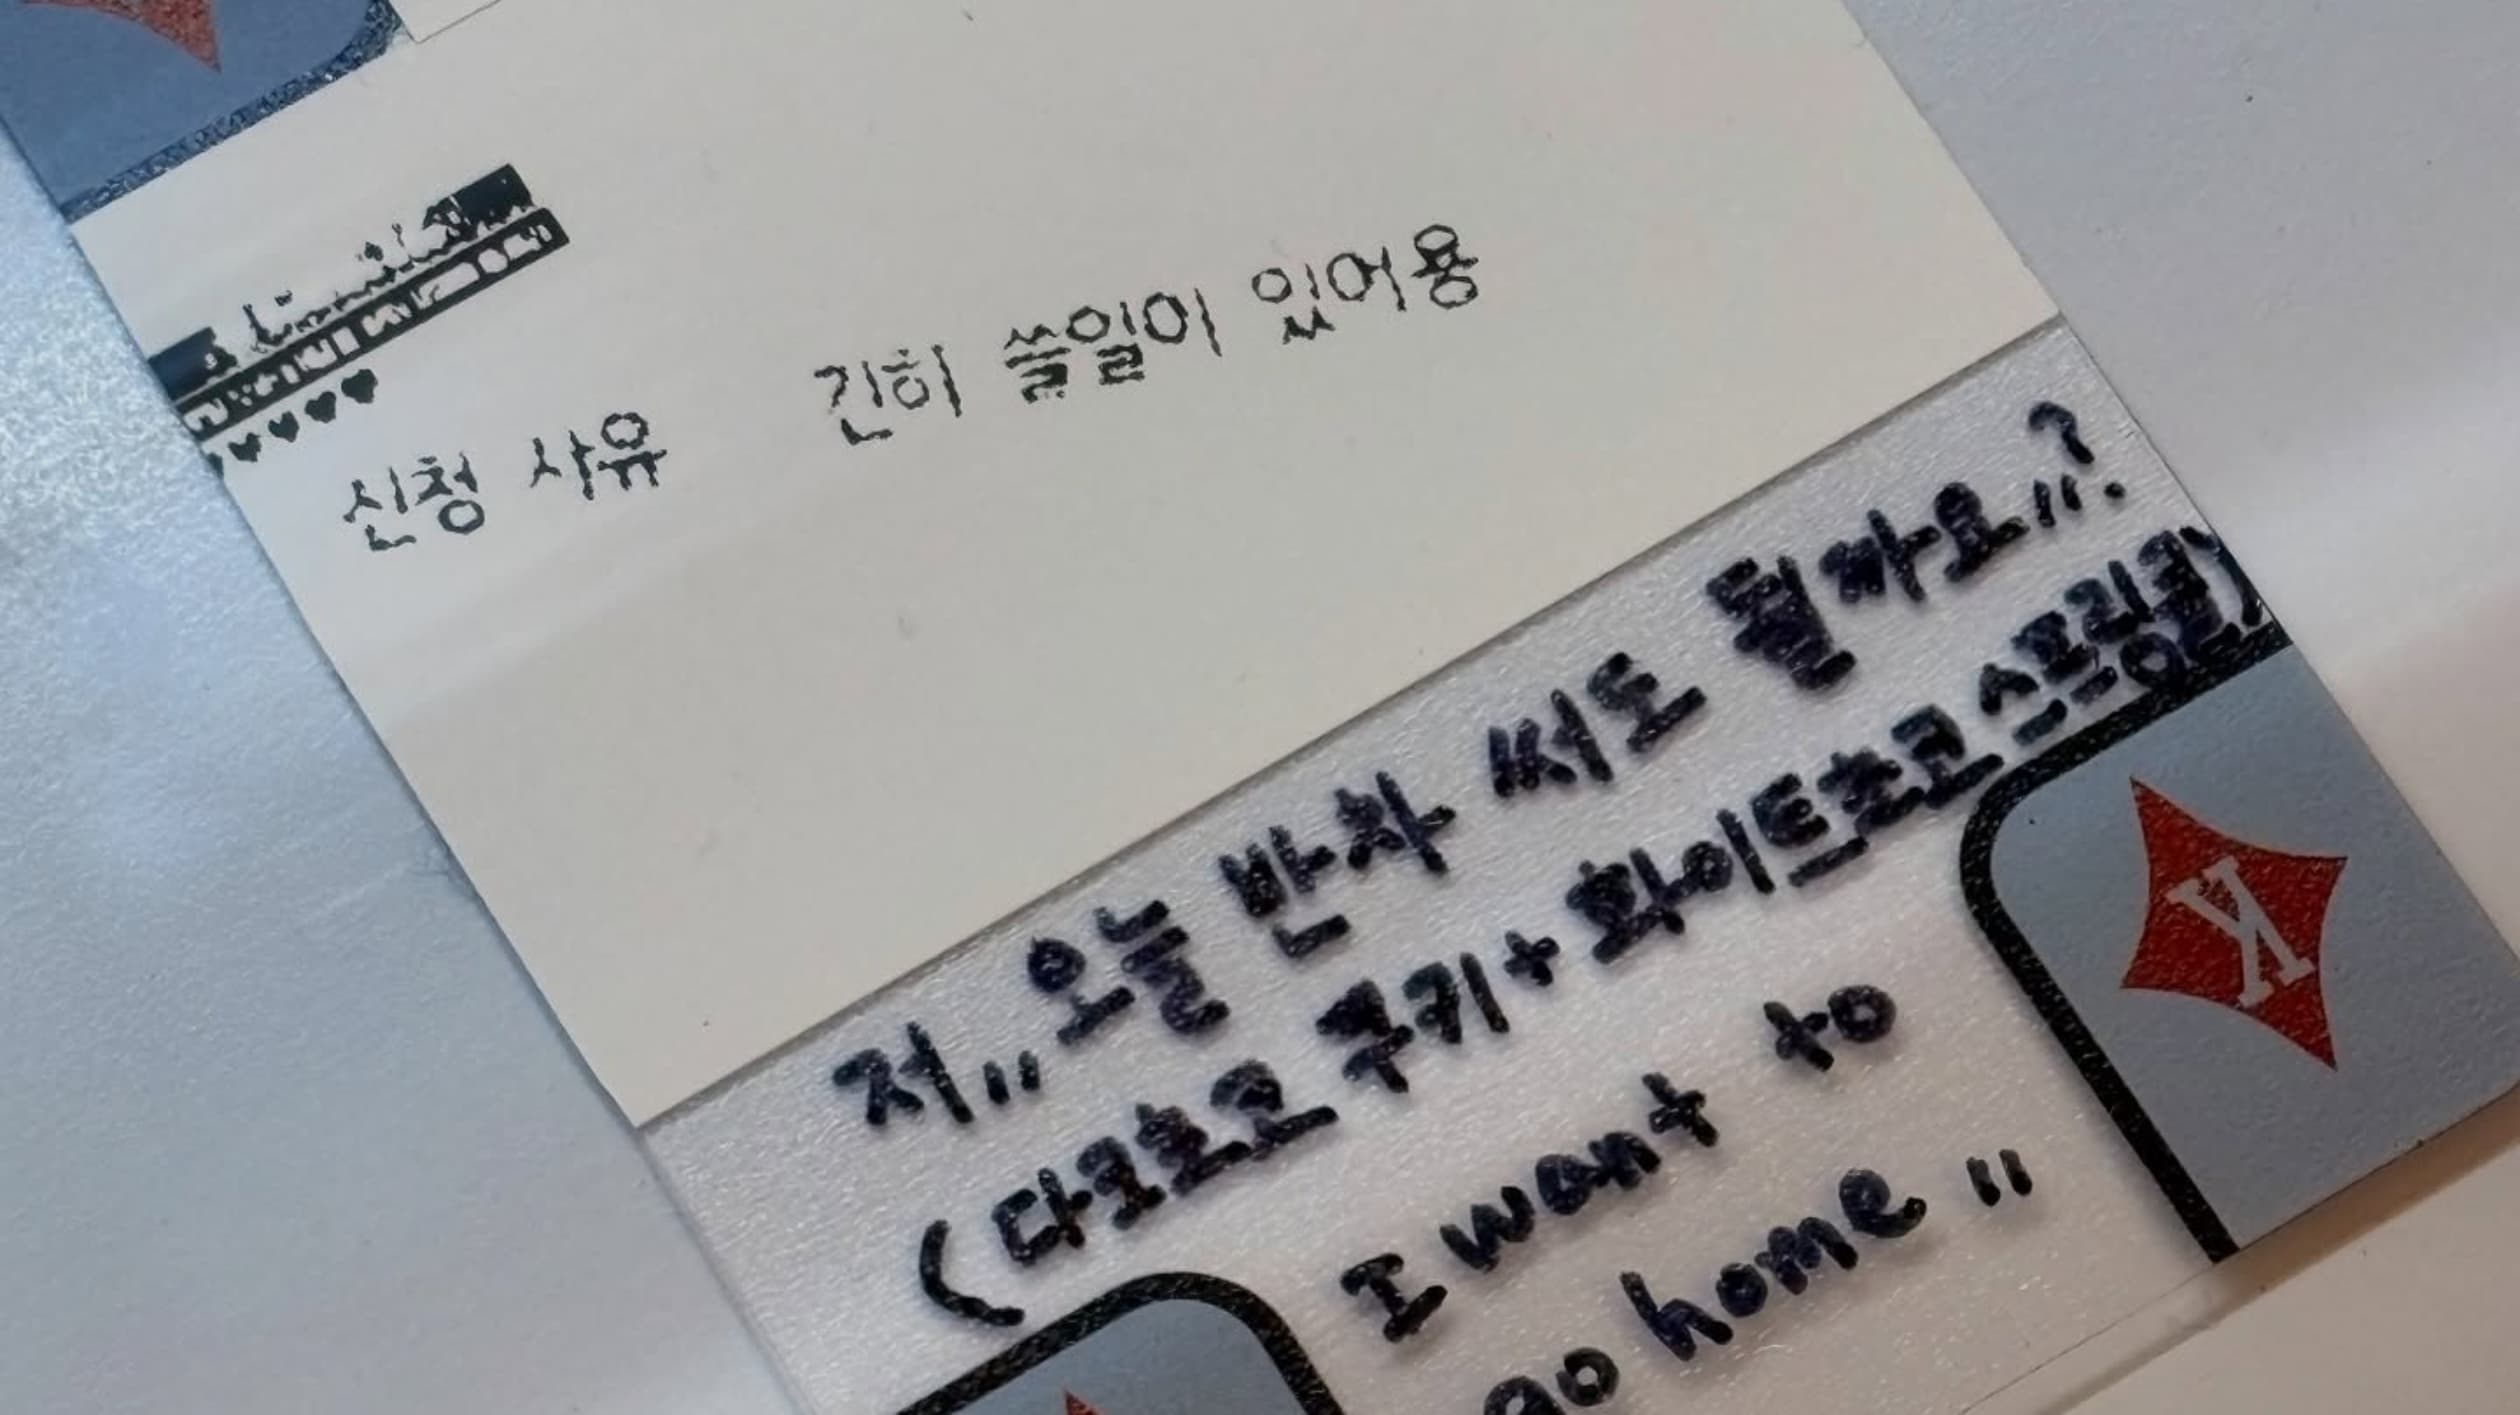 신청 사유 긴히 쓸일이 있어용
저,, 오늘 반차 써도 될까요,,?
(다크초코 쿠키+화이트초코 스프링클)
I want to
go home ,,
K